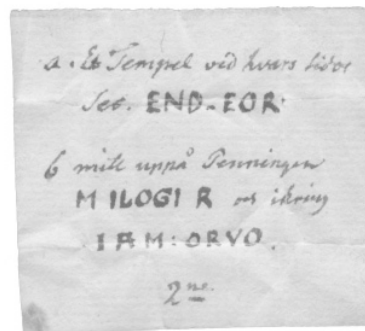 a. Et Tempel ved hvars sidor
ses. END-EOR.
6 mitt uppå Penningen
MILOGI R och ikring
I AM: ORVO.
2 ne.